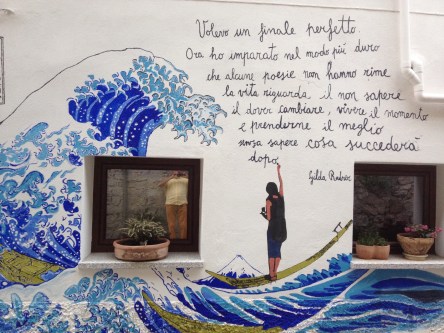 Volevo un finale perfetto.
Ora ho imparato nel modo più duro
che alcune poesie non hanno rime
la vita riguarda il non sapere
il dover cambiare, vivere il momento
e prenderne il meglio
senza sapere cosa succederà
dopo
Gilda Radner